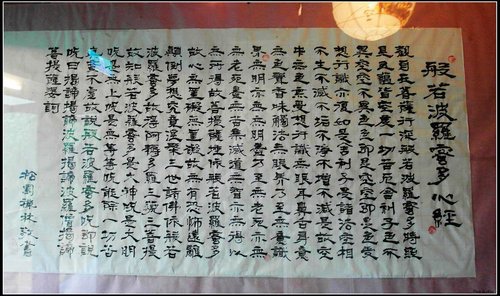 般若波羅蜜多心經
觀自在菩薩行深般若波羅蜜多時照
見五蘊皆空度一切苦厄舍利子色不
異空空不異色色即是空空即是色受
想行識亦復如是舍利子是諸法空相
不生不滅不垢不淨不增不減是故空
中無色無受想行識無眼耳鼻舌身意
無色聲香味觸法無眼界乃至無意識
界無無明亦無無明盡乃至無老死亦
無老死盡無苦集滅道無智亦無得以
無所得故菩提薩埵依般若波羅蜜多
故心無罣礙無罣礙故無有恐怖遠離
顛倒夢想究竟涅槃三世諸佛依般若
波羅蜜多故得阿耨多羅三藐三菩提
故知般若波羅蜜多是大神咒是大明
咒是無上咒是無等等咒能除一切苦
真實不虛故說般若波羅蜜多咒即說
咒曰揭諦揭諦波羅揭諦波羅僧揭諦
菩提薩婆訶
松園禪林敬書